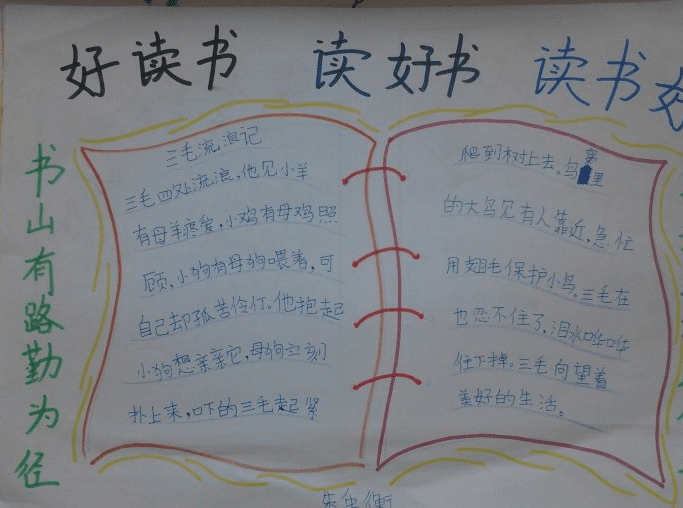 好读书 读好书 读书好
书山有路勤为径
三毛流浪记
三毛四处流浪,他见小羊
有母羊疼爱,小鸡有母鸡照
顾,小狗有母狗喂着,可
自己却孤苦伶仃。他抱起
小狗想亲亲它,母狗立刻
扑上来,吓的三毛赶紧
爬到树上去。鸟窝里
的大鸟见有人靠近,急忙
用翅毛保护小鸟。三毛在
也忍不住了,泪水哗哗
往下掉。三毛向望着
美好的生活。